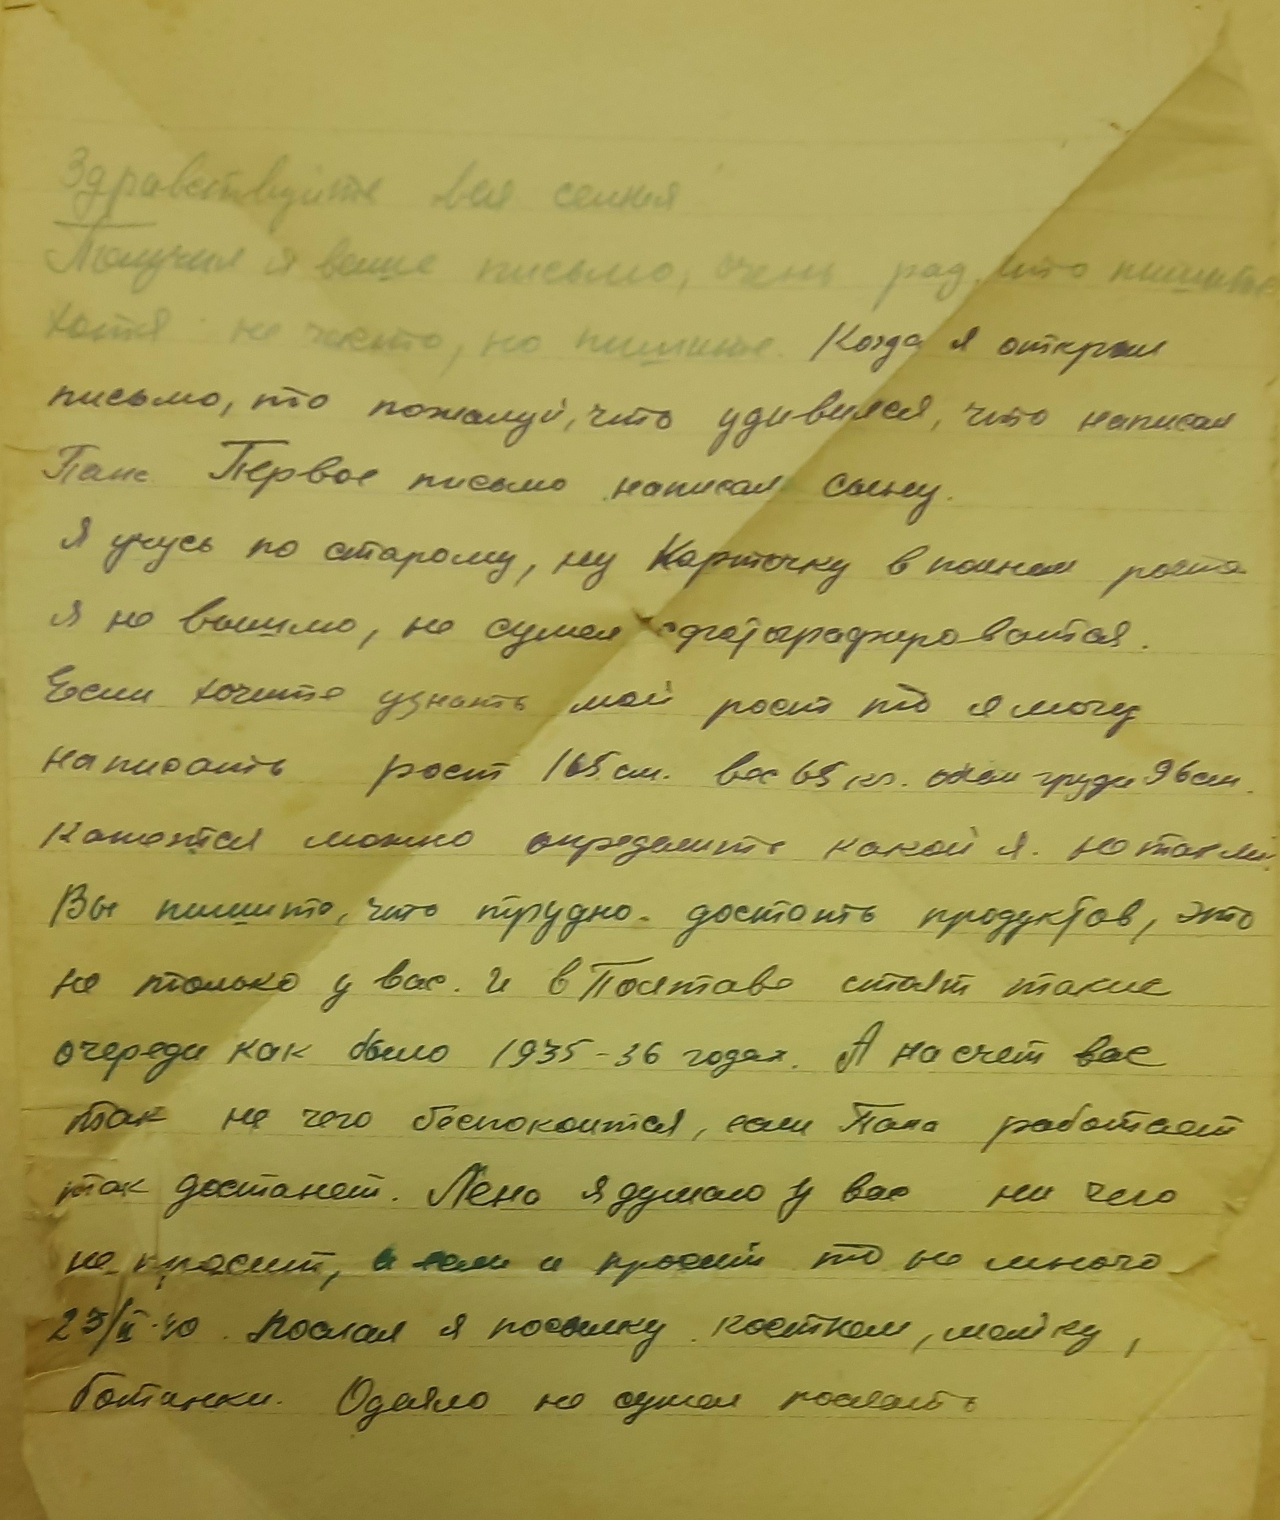 Здравствуйте вся семья
Получил я ваше письмо, очень рад, что пишите
хотя не часто, но пишите. Когда я открыл
письмо, то пожалуй, что удивился, что написал
Папа Первое письмо написал сыну.
Я учусь по старому, ну Карточку в полном роста
я не вышлю, не сумел сфотографироватся.
Если хочите узнать мой рост то я могу
написать рост 165 см. вес 65 кг. обём груди 96 см.
Кажется можно определить какой я. не так ли.
Вы пишите, что трудно достать продуктов, это
не только у вас. И в Полтаве стоят такие
очереди как было 1935-36 годах. А на счет вас
так не чего беспокоится, если Папа работает
так достанет. Лена я думаю у вас ни чего
не просит, а если и просит то не много
23/II-40. Послал я посылку костюм, майку,
ботинки. Одеяло не сумел послать